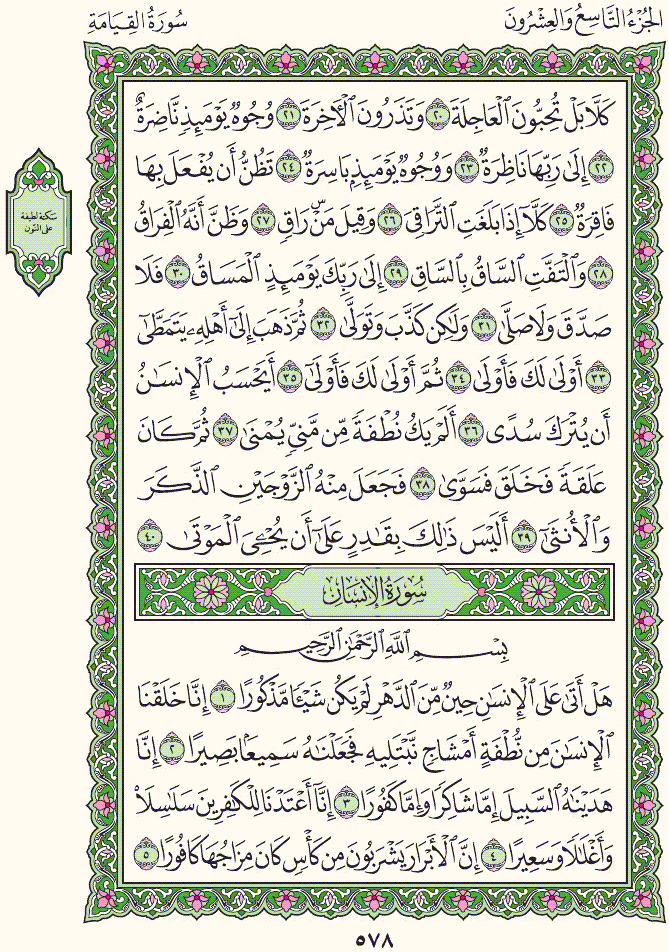 الجُزْءُ التَّاسِعُ وَالعِشْرُونَ
سُورَةُ القِيَامَةِ
كَلَّا بَلْ تُحِبُّونَ ٱلْعَاجِلَةَ ٢٠ وَتَذَرُونَ ٱلْأَخِرَةَ ٢١ وُجُوهٌ يَوْمَئِذٍ نَّاضِرَةٌ
٢٢ إِلَىٰ رَبِّهَا نَاظِرَةٌ ٢٣ وَوُجُوهٌ يَوْمَئِذٍۭ بَاسِرَةٌ ٢٤ تَظُنُّ أَن يُفْعَلَ بِهَا
فَاقِرَةٌ ٢٥ كَلَّآ إِذَا بَلَغَتِ ٱلتَّرَاقِىَ ٢٦ وَقِيلَ مَنْۜ رَاقٍ ٢٧ وَظَنَّ أَنَّهُ ٱلْفِرَاقُ
٢٨ وَٱلْتَفَّتِ ٱلسَّاقُ بِٱلسَّاقِ ٢٩ إِلَىٰ رَبِّكَ يَوْمَئِذٍ ٱلْمَسَاقُ ٣٠ فَلَا
صَدَّقَ وَلَا صَلَّىٰ ٣١ وَلَٰكِن كَذَّبَ وَتَوَلَّىٰ ٣٢ ثُمَّ ذَهَبَ إِلَىٰٓ أَهْلِهِۦ يَتَمَطَّىٰٓ
٣٣ أَوْلَىٰ لَكَ فَأَوْلَىٰ ٣٤ ثُمَّ أَوْلَىٰ لَكَ فَأَوْلَىٰٓ ٣٥ أَيَحْسَبُ ٱلْإِنسَٰنُ
أَن يُتْرَكَ سُدًى ٣٦ أَلَمْ يَكُ نُطْفَةً مِّن مَّنِىٍّ يُمْنَىٰ ٣٧ ثُمَّ كَانَ
عَلَقَةً فَخَلَقَ فَسَوَّىٰ ٣٨ فَجَعَلَ مِنْهُ ٱلزَّوْجَيْنِ ٱلذَّكَرَ
وَٱلْأُنثَىٰٓ ٣٩ أَلَيْسَ ذَٰلِكَ بِقَٰدِرٍ عَلَىٰٓ أَن يُحْـِۧىَ ٱلْمَوْتَىٰ ٤٠
سُورَةُ الإِنسَانِ
بِسْمِ ٱللَّهِ ٱلرَّحْمَٰنِ ٱلرَّحِيمِ
هَلْ أَتَىٰ عَلَى ٱلْإِنسَٰنِ حِينٌ مِّنَ ٱلدَّهْرِ لَمْ يَكُن شَيْـًٔا مَّذْكُورًا ١ إِنَّا خَلَقْنَا
ٱلْإِنسَٰنَ مِن نُّطْفَةٍ أَمْشَاجٍ نَّبْتَلِيهِ فَجَعَلْنَٰهُ سَمِيعًۢا بَصِيرًا ٢ إِنَّا
هَدَيْنَٰهُ ٱلسَّبِيلَ إِمَّا شَاكِرًا وَإِمَّا كَفُورًا ٣ إِنَّآ أَعْتَدْنَا لِلْكَٰفِرِينَ سَلَٰسِلَا۟
وَأَغْلَٰلًا وَسَعِيرًا ٤ إِنَّ ٱلْأَبْرَارَ يَشْرَبُونَ مِن كَأْسٍ كَانَ مِزَاجُهَا كَافُورًا ٥
سَكتة لطيفة
على النون
٥٧٨